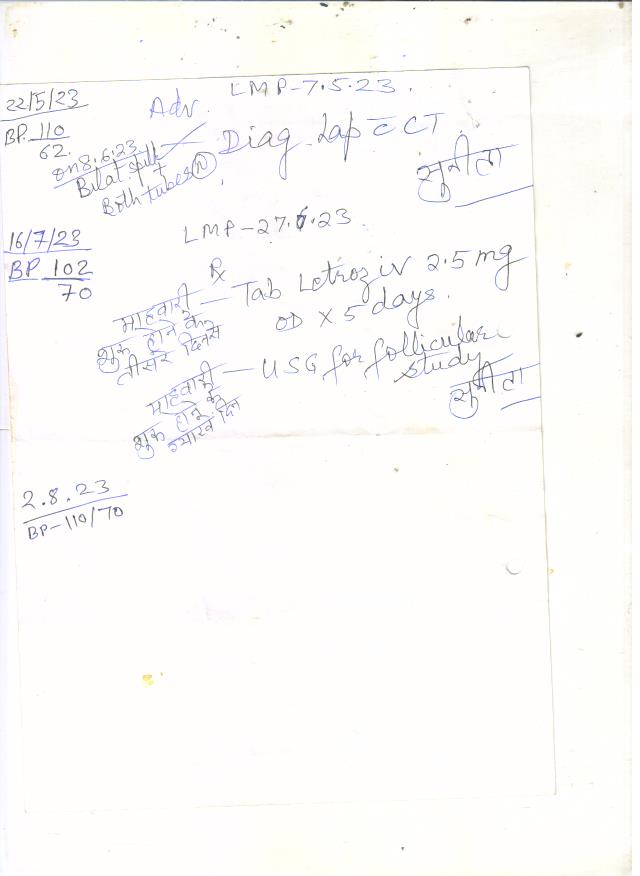 22/5/23
LMP-7.5.23.
BP. 110
62.
Adv.
Diag Lap c̄ CT.
on 8.6.23
Bilat spill +
Both tubes Ⓝ
सुनीता
16/7/23
LMP-27.6.23
BP 102
70
℞
माहवारी
शुरू होने के
तीसरे दिन से
— Tab Letroz iv 2.5 mg
OD x 5 days.
माहवारी
शुरू होने के
ग्यारवें दिन
— USG for follicular
study
सुनीता
2.8.23
BP-110/70